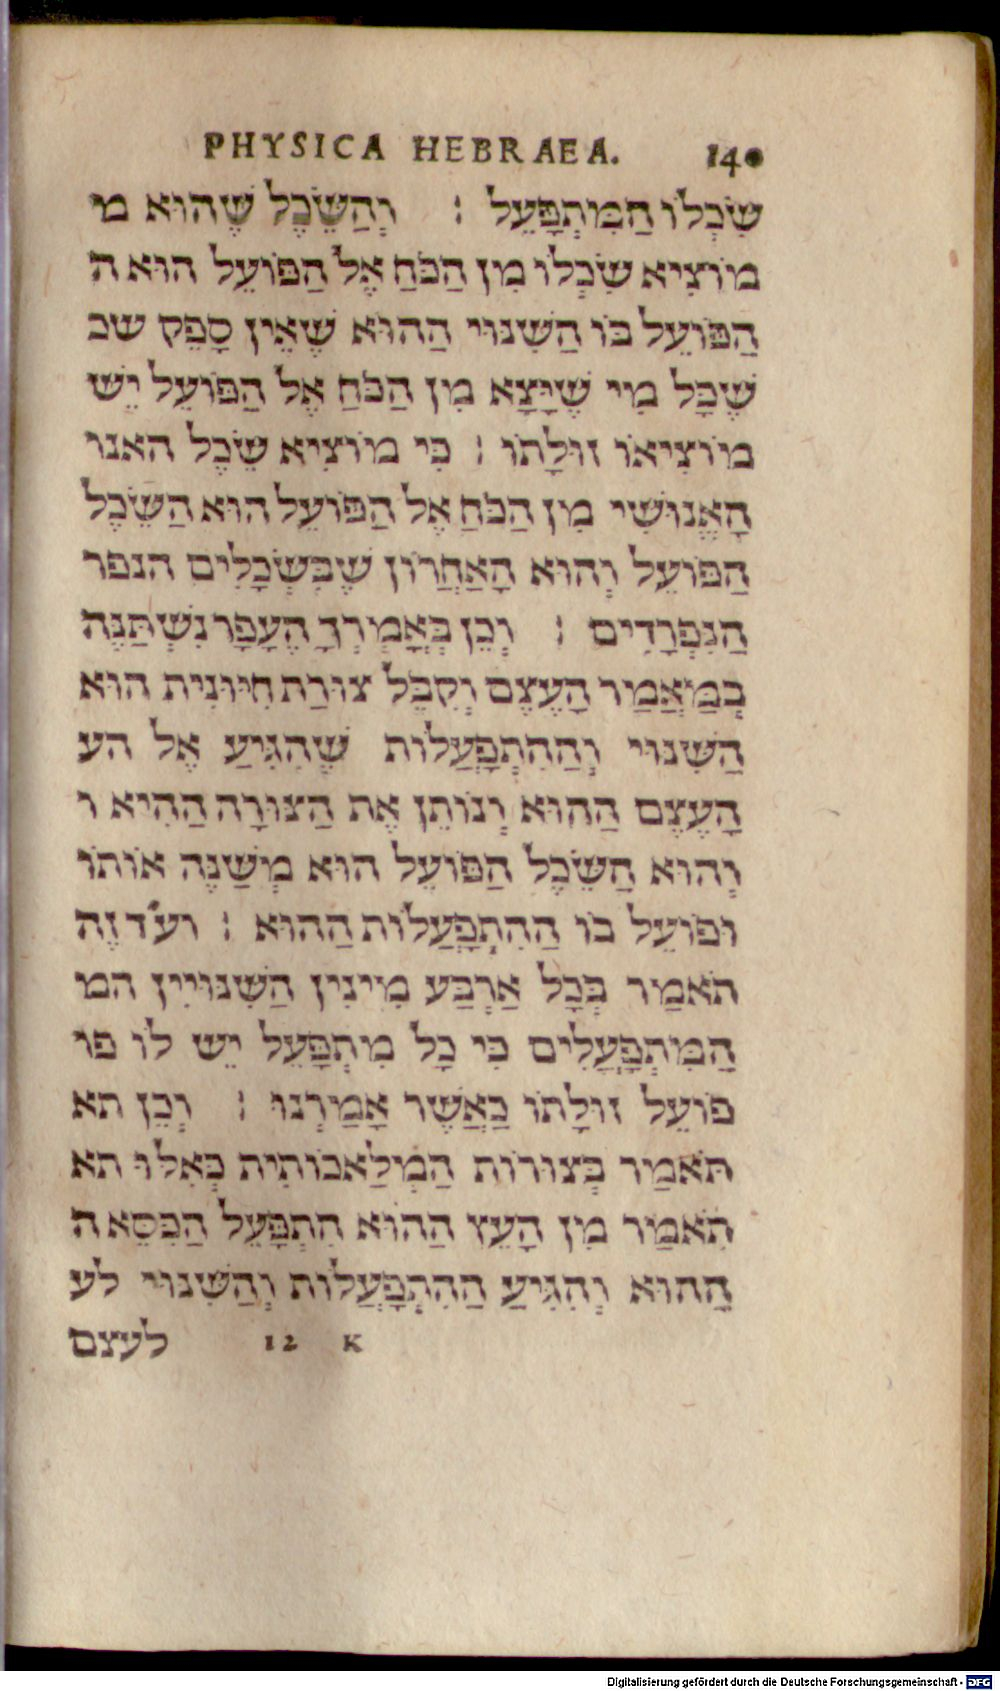 PHYSICA HEBRAEA. 140
שִׂכְלוֹ הַמִּתְפָּעֵל : וְהַשֵּׂכֶל שֶׁהוּא מ
מוֹצִיא שִׂכְלוֹ מִן הַכֹּחַ אֶל הַפּוֹעֵל הוּא ה
הַפּוֹעֵל בּוֹ הַשִּׁנּוּי הַהוּא שֶׁאֵין סָפֵק שכ
שֶׁכָּל מִי שֶׁיָּצָא מִן הַכֹּחַ אֶל הַפּוֹעֵל יֵשׁ
מוֹצִיאוֹ זוּלָתוֹ : כִּי מוֹצִיא שֵׂכֶל האנו
הָאֱנוּשִׁי מִן הַכֹּחַ אֶל הַפּוֹעֵל הוּא הַשֵּׂכֶל
הַפּוֹעֵל וְהוּא הָאַחֲרוֹן שֶׁבִּשְׂכָלִים הנפר
הַנִּפְרָדִים : וְכֵן בְּאָמְרְךָ הֶעָפָר נִשְׁתַּנֶּה
בְמַאֲמַר הָעֶצֶם וְקִבֵּל צוּרַת חִיּוּנִית הוּא
הַשִּׁנּוּי וְהַהִתְפָּעֲלוּת שֶׁהִגִּיעַ אֶל הע
הָעֶצֶם הַהוּא וְנוֹתֵן אֶת הַצּוּרָה הַהִיא ו
וְהוּא הַשֵּׂכֶל הַפּוֹעֵל הוּא מְשַׁנֶּה אוֹתוֹ
וּפוֹעֵל בוֹ הַהִתְפָּעֲלוּת הַהוּא : וע״ד זֶה
תֹּאמַר בְּכָל אַרְבַּע מִינִין הַשִּׁנּוּיִין המ
הַמִּתְפָּעֲלִים כִּי כָל מִתְפָּעֵל יֵשׁ לוֹ פו
פוֹעֵל זוּלָתוֹ כַּאֲשֶׁר אָמַרְנוּ : וְכֵן תא
תֹּאמַר בְּצוּרוֹת הַמְלַאכוּתִית כְּאִלּוּ תא
תֹּאמַר מִן הָעֵץ הַהוּא הִתְפָּעֵל הַכִּסֵּא ה
הַהוּא וְהִגִּיעַ הַהִתְפָּעֲלוּת וְהַשִּׁנּוּי לע
לעצם 12 K
Digitalisierung gefördert durch die Deutsche Forschungsgemeinschaft - DFG